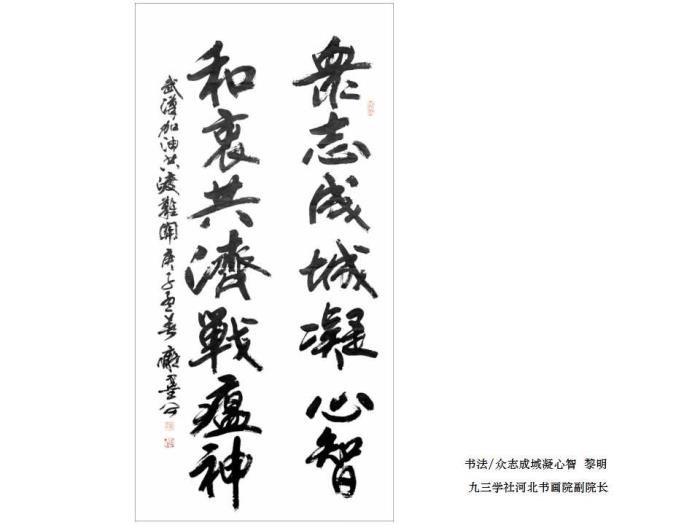 眾志成城凝心智
和衷共濟戰瘟神
武漢加油共渡難關庚子孟春
书法/众志成城凝心智 黎明
九三学社河北书画院副院长